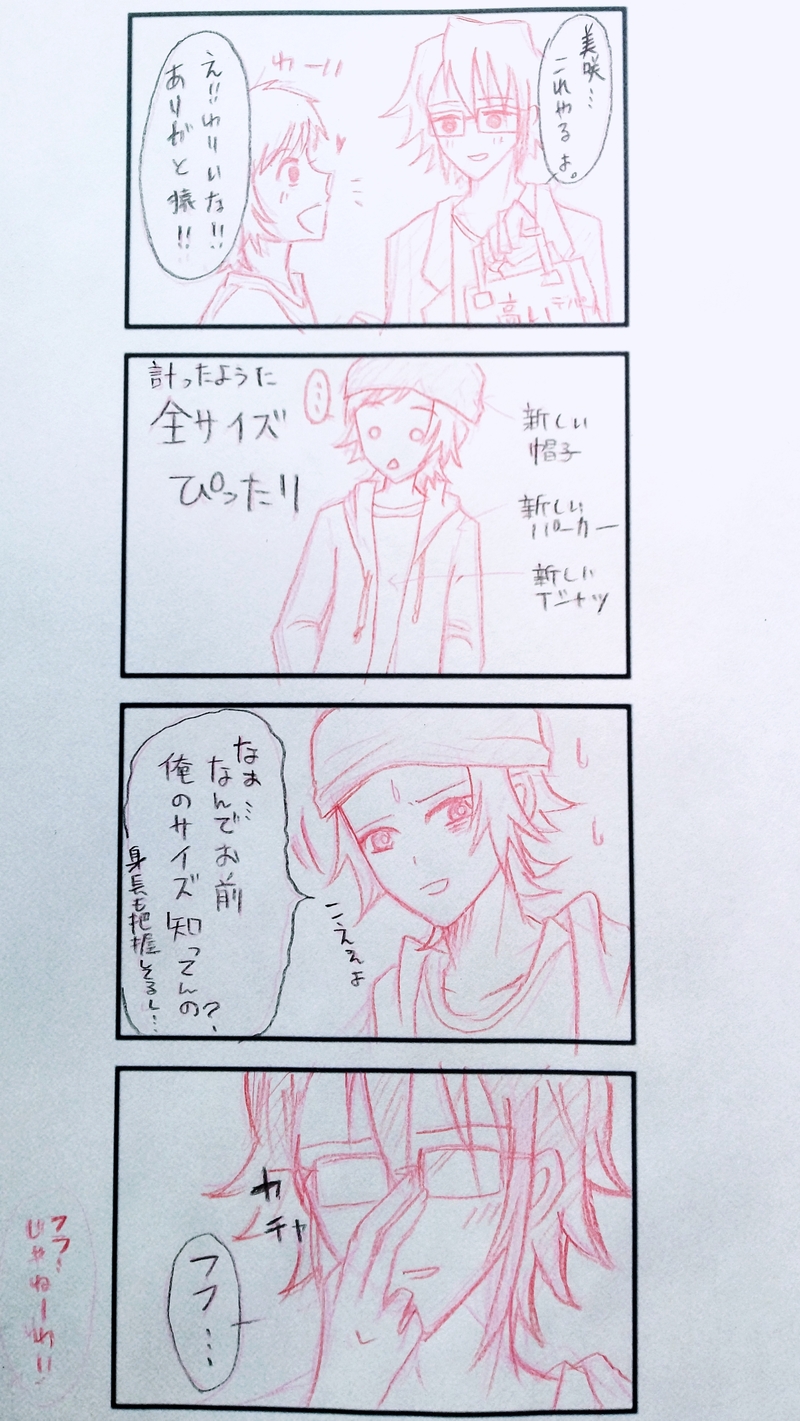 美咲…
これやるよ。
わーい
え!!わりいな!!
ありがと猿!!
高い
計ったように
全サイズ
ぴったり
新しい
帽子
新しい
パーカー
新しい
Tシャツ
なぁ…
なんでお前
俺のサイズ知ってんの?
身長も把握してるし…
こえぇよ
カチャ
フフ…
フフ…
じゃねーわ!!